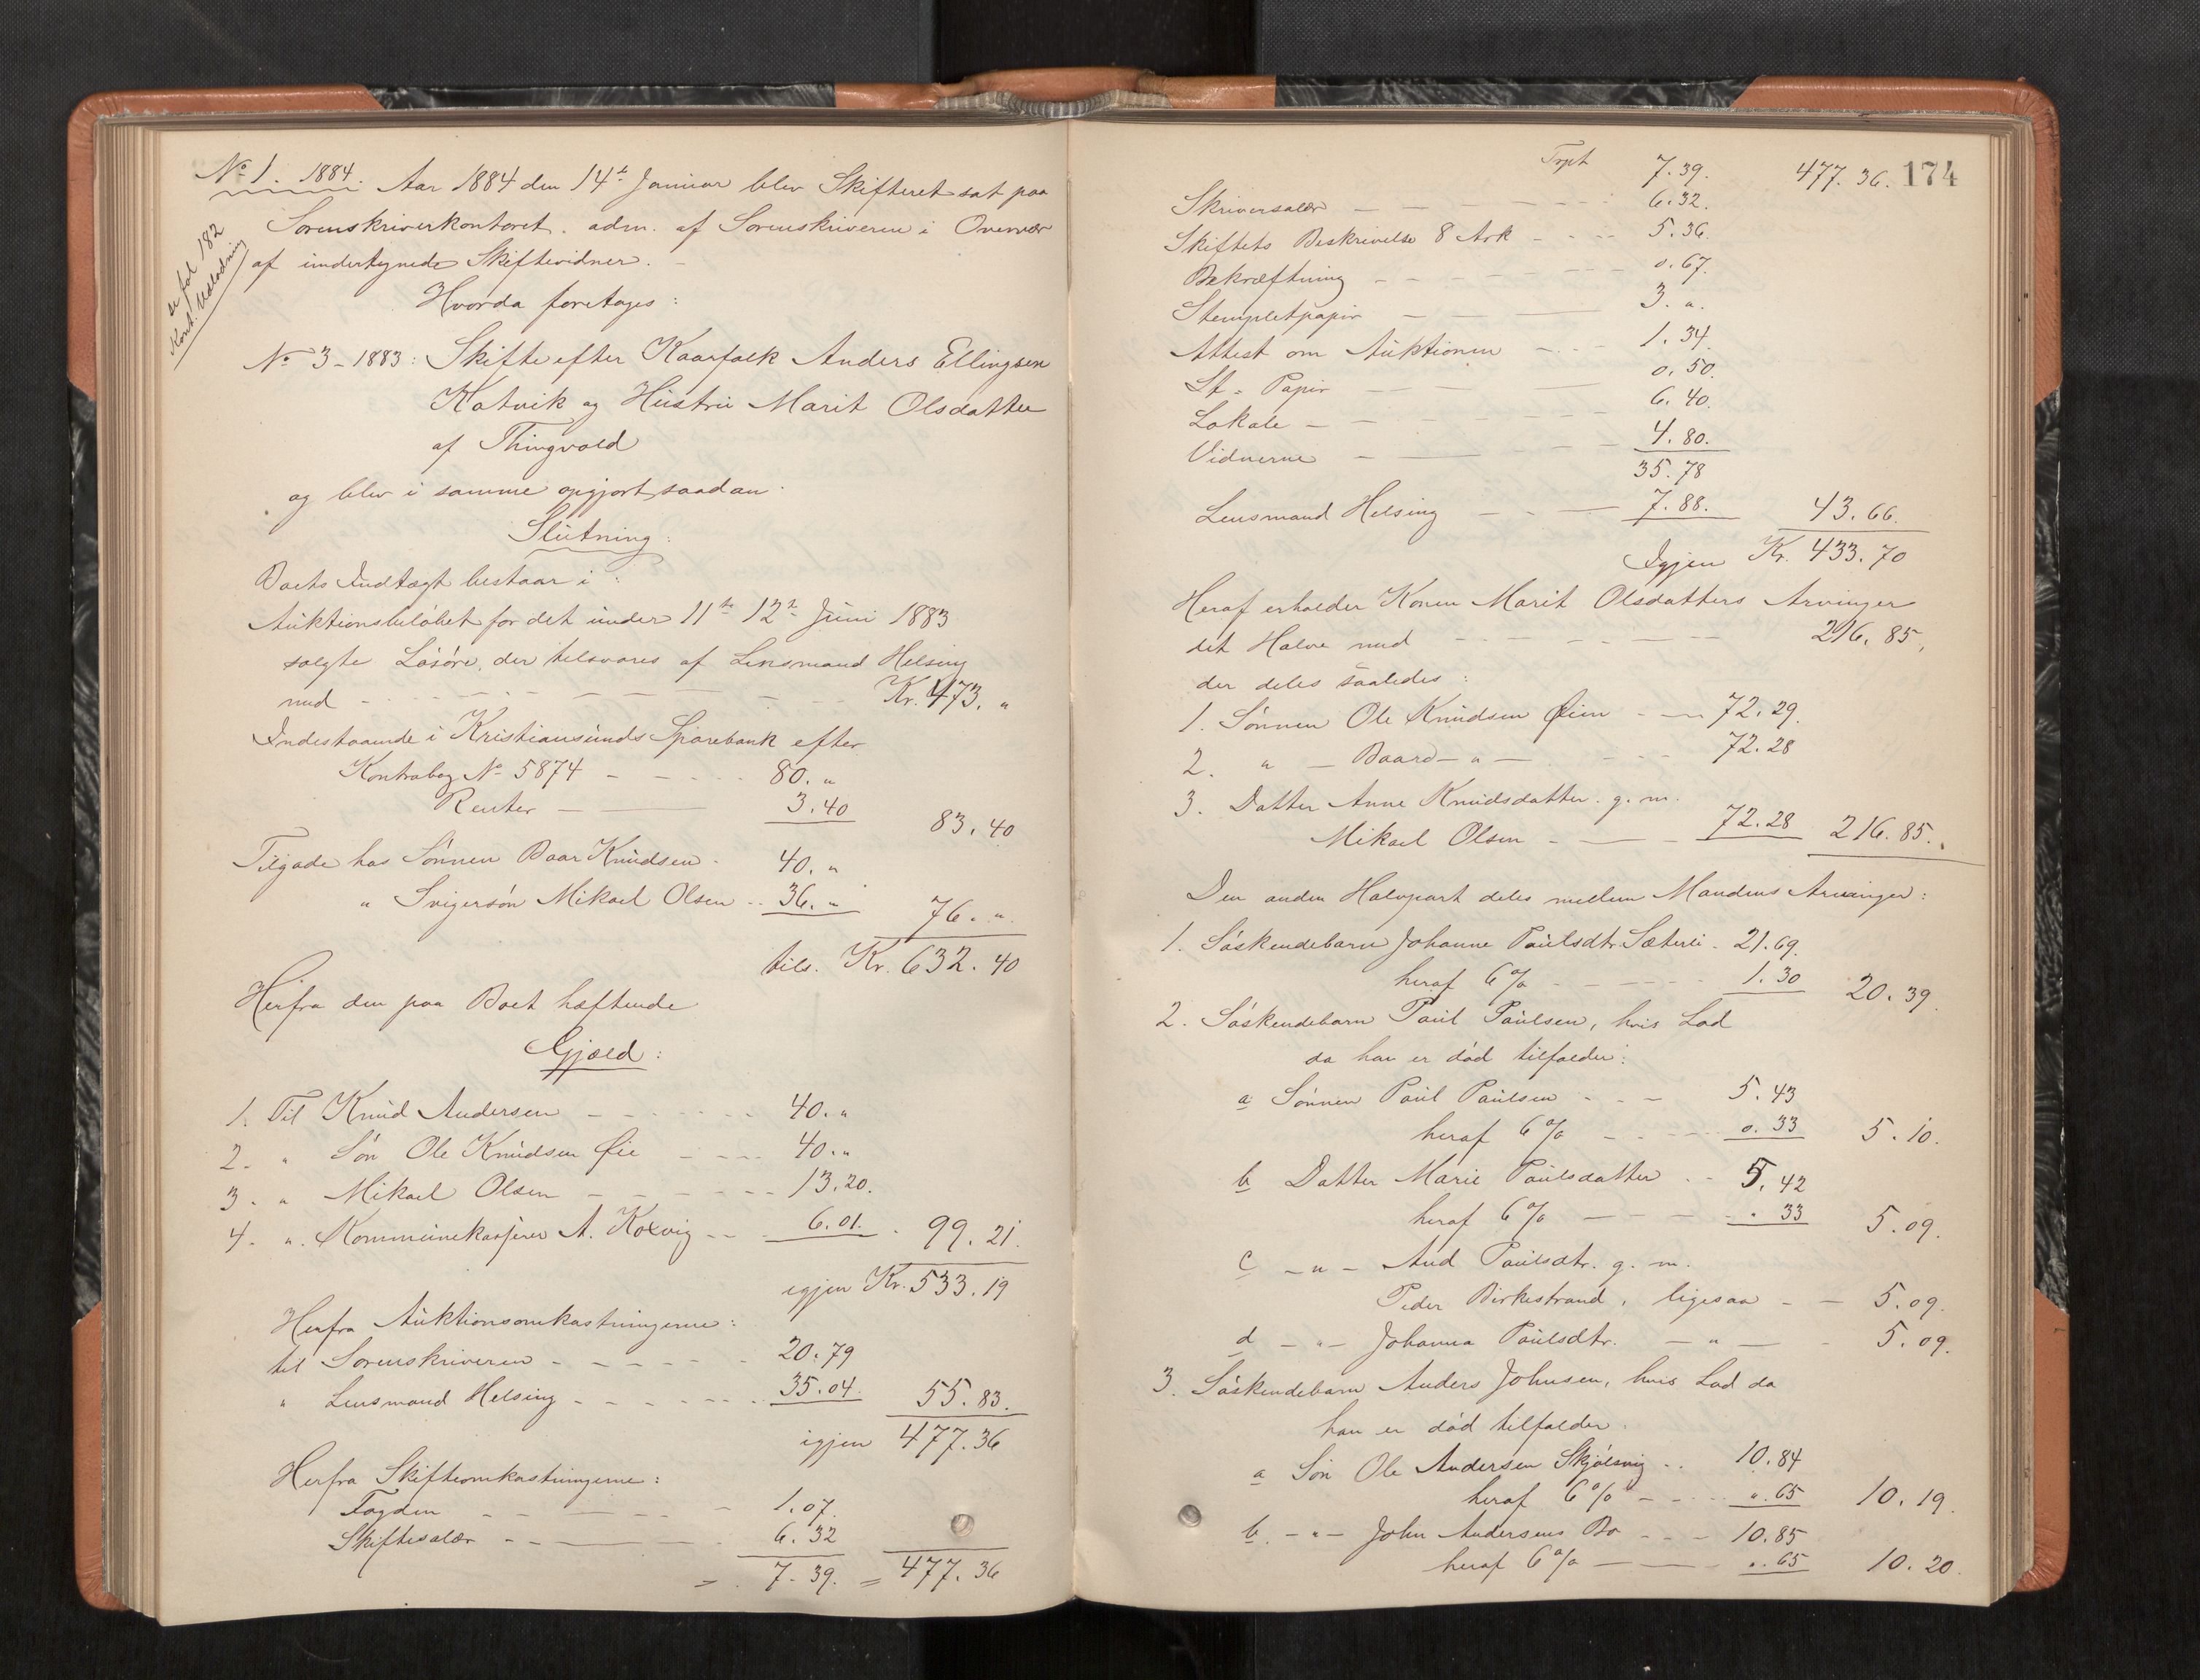 No 1. 1884. Aar 1884 den 14de Januar blev Skifteret sat paa
Sorenskriverkontoret. adm. af Sorenskriveren i Overvær
af undertegnede Skiftevidner.
se fol 182
Kont. Udlodning
Hvorda foretages:
No 3-1883: Skifte efter Kaarfolk Anders Ellingsen
Kotvik og Hustru Marit Olsdatter
af Thingvold
og blev i samme opgjort saadan.
Slutning:
Boets Indtægt bestaar i:
Auktionsbeløbet for det under 11te 12te Juni 1883
solgte Løsøre, der tilsvares af Lensmand Helsing
med - - - Kr. 473. "
Indestaaende i Kristiansunds Sparebank efter
Kontrabog No 5874 - - - 80. "
Renter - - 3.40 83.40
Tilgode hos Sønnen Baar Knudsen - 40. "
" Svigersøn Mikael Olsen - 36. " 76. "
tils. Kr. 632.40
Herfra den paa Boet hæftende
Gjæld:
1. Til Knud Andersen - - - 40. "
2. " Søn Ole Knudsen Øie - - - 40. "
3. " Mikael Olsen - - - 13.20.
4. " Kommunekasserer A. Koxvig - - 6.01. 99.21.
igjen Kr. 533.19
Herfra Auktionsomkostningerne:
til Sorenskriveren - - - 20.79
" Lensmand Helsing - - - 35.04. 55.83.
igjen 477.36
Herfra Skifteomkostningerne:
Fogden - - - 1.07.
Skiftesalær - - - 6.32
= 7.39. = 477.36
174
Trpt 7.39. 477.36.
Skriversalær - - - 6.32.
Skiftets Beskrivelse 8 Ark - - - 5.36.
Bekræftning - - - 0.67.
Stempletpapir - - 3. "
Attest om Auktionen - - - 1.34.
St. Papir - - 0.50.
Lokale - - 6.40.
Vidnerne - - 4.80.
35.78
Lensmand Helsing - - - 7.88. 43.66.
Igjen Kr. 433.70
Heraf erholder Konen Marit Olsdatters Arvinger
det Halve med - - - 216.85,
der deles saaledes:
1. Sønnen Ole Knudsen Øien - - 72.29.
2. " - Baard - " - - - 72.28
3. Datter Anne Knudsdatter. g. m.
Mikael Olsen - - - 72.28 216.85.
Den anden Halvpart deles mellem Mandens Arvinger:
1. Søskendebarn Johanne Paulsdtr. Sæterli - 21.69.
heraf 6 % - - - 1.30 20.39.
2. Søskendebarn Paul Paulsen, hvis Lod
da han er død tilfalder:
a Sønnen Paul Paulsen - - - 5.43
heraf 6 % - - - 0.33 5.10.
b Datter Marie Paulsdatter - - 5.42
heraf 6 % - - - " 33 5.09.
c - " - Aud Paulsdtr. g. m.
Peder Birkestrand, ligesaa - - 5.09.
d - " - Johanna Paulsdtr. - " - - 5.09.
3. Søskendebarn Anders Johnsen, hvis Lod da
han er død tilfalder.
a Søn Ole Andersen Skjølsvig - - 10.84
heraf 6 % - - - ". 65 10.19.
b. - " - John Andersens Bo - - - 10.85
heraf 6 % - - ". 65 10.20.